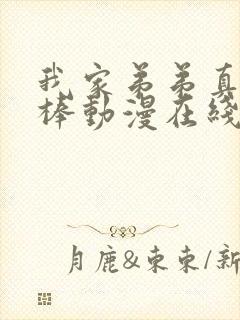 我家弟弟真
棒動漫在綫
月鹿&東東/新